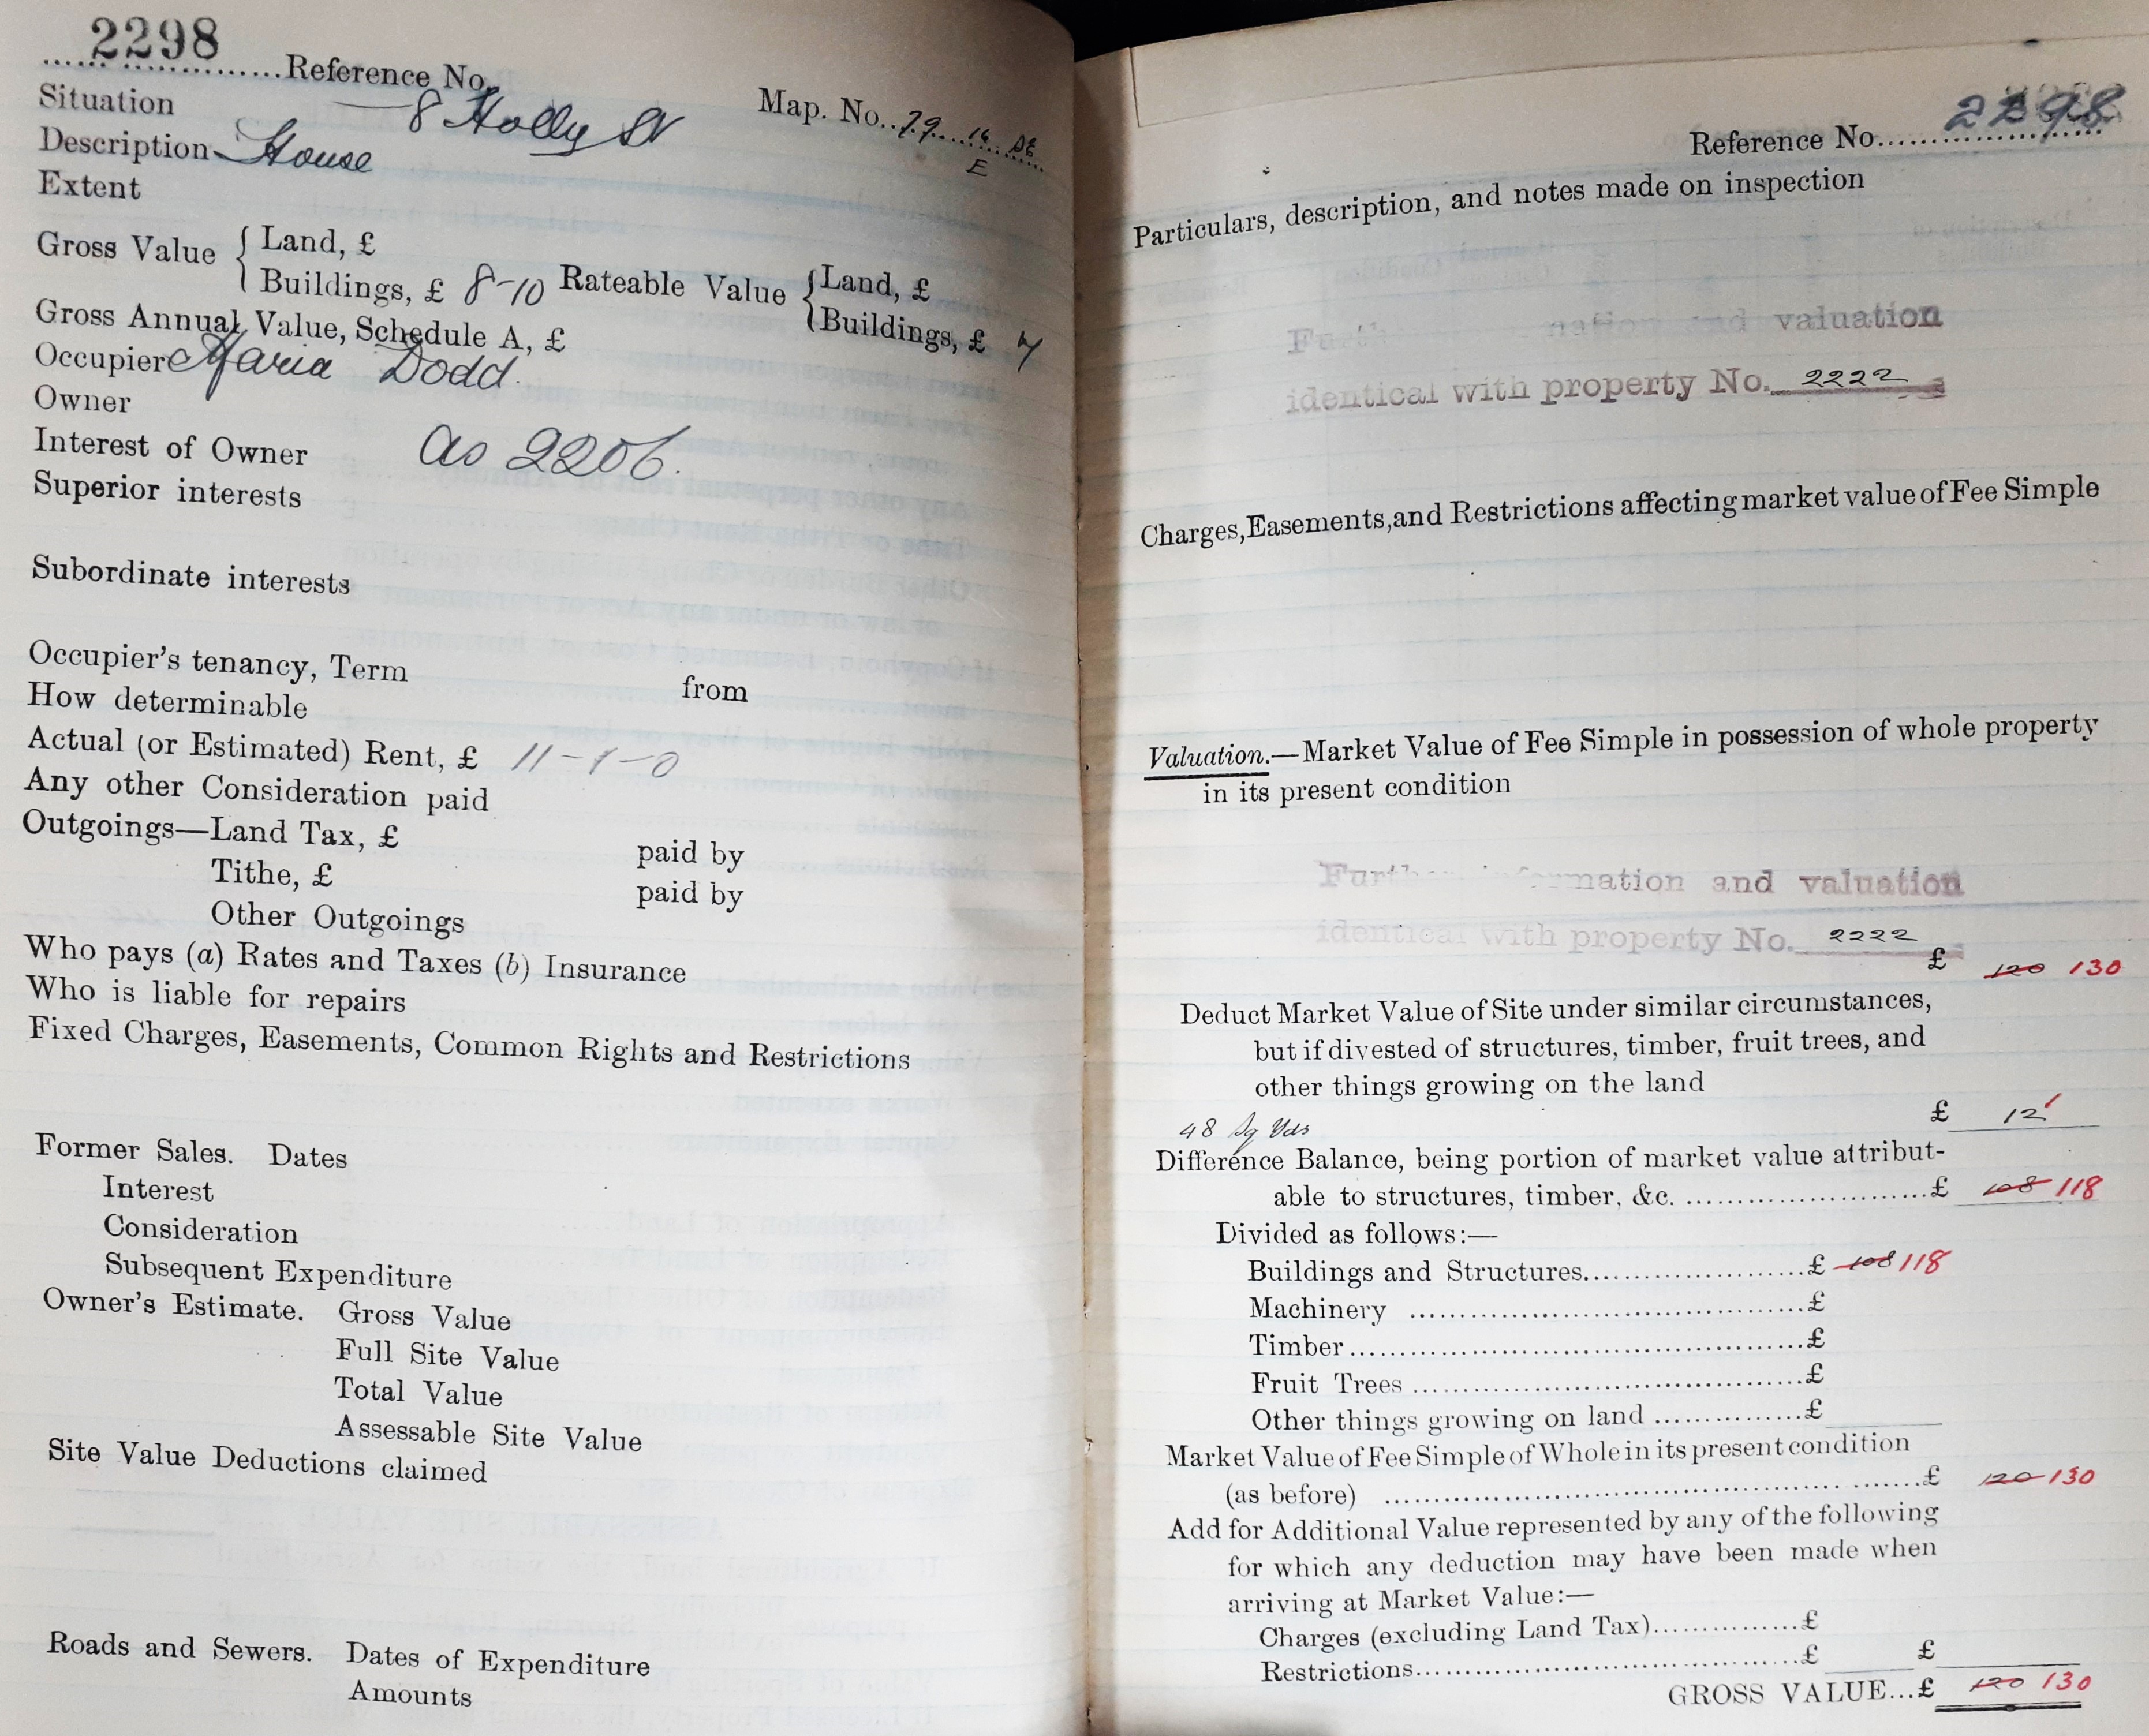 2298
Reference No.
Situation 8 Holly St Map. No. 79 14 DE
E
Description House
Extent
Gross Value { Land, £
Buildings, £ 8-10 Rateable Value { Land, £
Buildings, £ 7
Gross Annual Value, Schedule A, £
Occupier Maria Dodd
Owner
Interest of Owner as 2206.
Superior interests
Subordinate interests
Occupier's tenancy, Term from
How determinable
Actual (or Estimated) Rent, £ 11-1-0
Any other Consideration paid
Outgoings—Land Tax, £ paid by
Tithe, £ paid by
Other Outgoings
Who pays (a) Rates and Taxes (b) Insurance
Who is liable for repairs
Fixed Charges, Easements, Common Rights and Restrictions
Former Sales. Dates
Interest
Consideration
Subsequent Expenditure
Owner's Estimate. Gross Value
Full Site Value
Total Value
Assessable Site Value
Site Value Deductions claimed
Roads and Sewers. Dates of Expenditure
Amounts
Reference No. 2298
Particulars, description, and notes made on inspection
and valuation
identical with property No. 2222
Charges, Easements, and Restrictions affecting market value of Fee Simple
Valuation.—Market Value of Fee Simple in possession of whole property
in its present condition
Further information and valuation
identical with property No. 2222
£ 120 130
Deduct Market Value of Site under similar circumstances,
but if divested of structures, timber, fruit trees, and
other things growing on the land
£ 12
48 Sq Yds
Difference Balance, being portion of market value attribut-
able to structures, timber, &c. £ 108 118
Divided as follows:—
Buildings and Structures £ 108 118
Machinery £
Timber £
Fruit Trees £
Other things growing on land £
Market Value of Fee Simple of Whole in its present condition
(as before) £ 120 130
Add for Additional Value represented by any of the following
for which any deduction may have been made when
arriving at Market Value:—
Charges (excluding Land Tax) £
Restrictions £ £
GROSS VALUE... £ 120 130